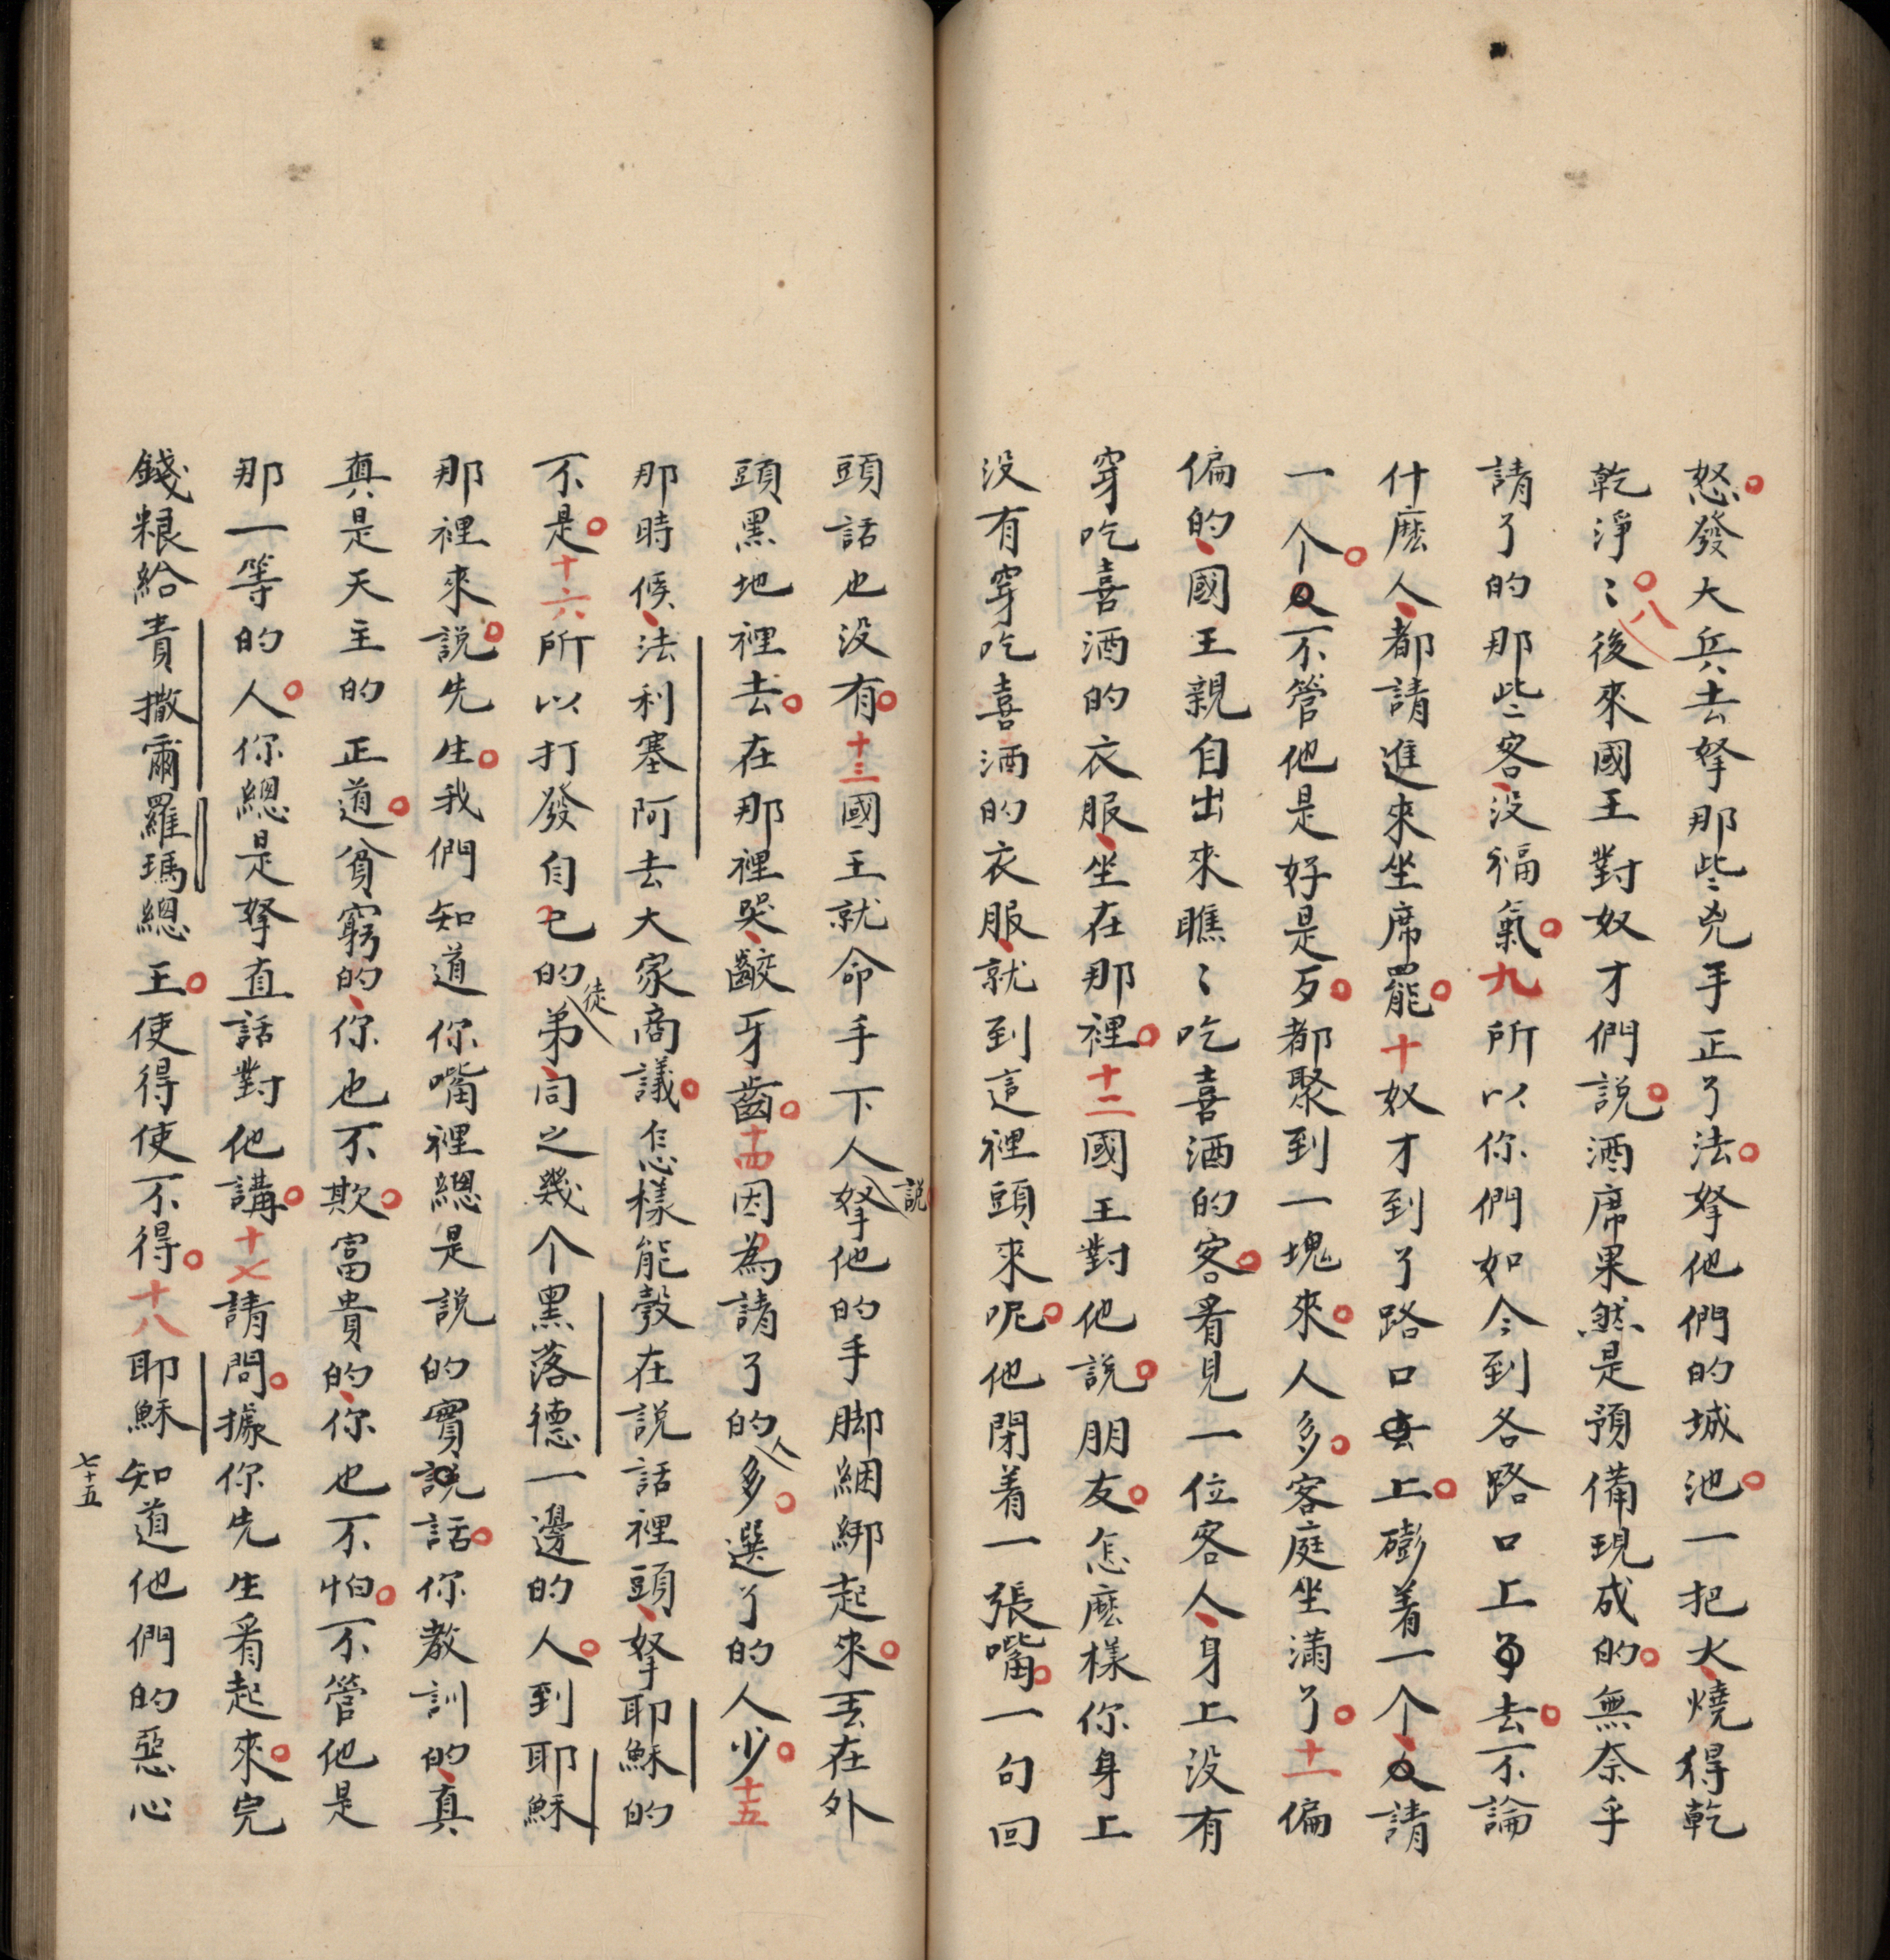 怒發大兵去拏那些兇手正了法拏他們的城池一把火燒得乾
乾淨〻八後來國王對奴才們説酒席果然是預備現成的無奈乎
請了的那些客没福氣九所以你們如今到各路口上去不論
什麽人都請進來坐席罷十奴才到了路口上碰着一个請
一个不管他是好是歹都聚到一塊來人多客庭坐滿了十一偏
偏的國王親自出來瞧〻吃喜酒的客看見一位客人身上没有
穿吃喜酒的衣服坐在那裡十二國王對他説朋友怎麽樣你身上
没有穿吃喜酒的衣服就到這裡頭來呢他閉着一張嘴一句回
頭話也没有十三國王就命手下人説拏他的手脚綑綁起來丟在外
頭黑地裡去在那裡哭齩牙齒十四因為請了的人多選了的人少十五
那時候法利塞阿去大家商議怎樣能彀在説話裡頭拏耶穌的
不是十六所以打發自己的徒弟同之幾个黑落德一邊的人到耶穌
那裡來説先生我們知道你嘴裡總是説的實話你教訓的真
真是天主的正道貧窮的你也不欺富貴的你也不怕不管他是
那一等的人你總是拏直話對他講十七請問據你先生看起來完
錢粮給責撒爾羅瑪總王使得使不得十八耶穌知道他們的惡心
七十五